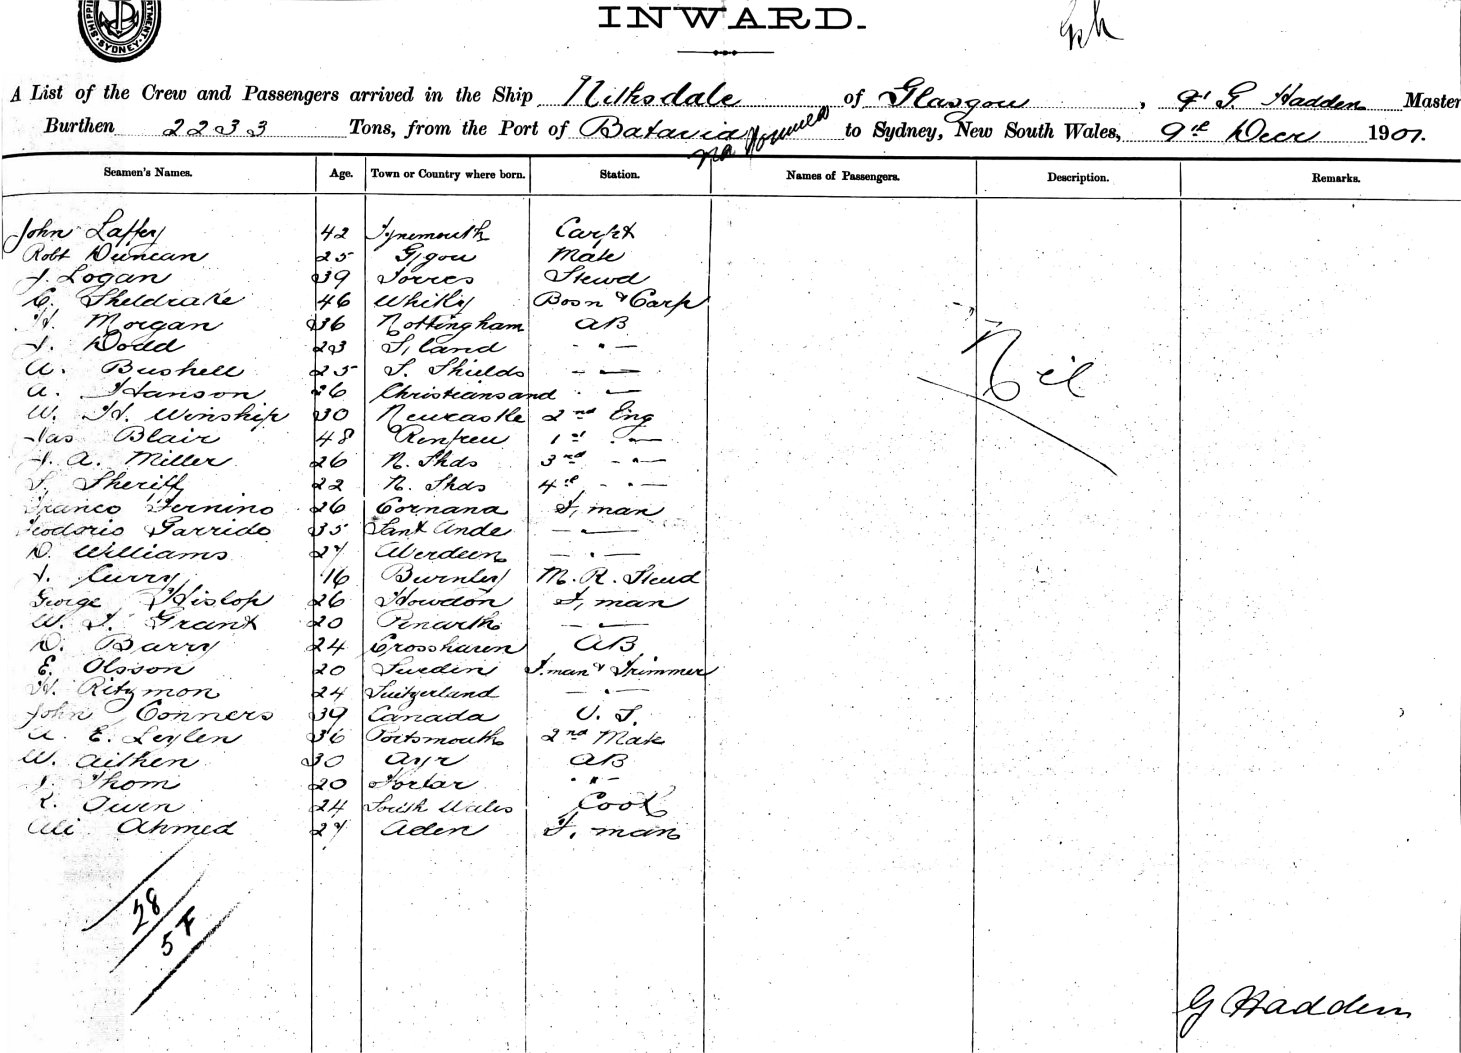 SHIPPING DEPARTMENT. SYDNEY.
INWARD.
A List of the Crew and Passengers arrived in the Ship Nithsdale of Glasgow, G. Hadden Master
Burthen 2233 Tons, from the Port of Batavia via Noumea to Sydney, New South Wales, 9th Decr 1901.
Seamen's Names. Age. Town or Country where born. Station. Names of Passengers. Description. Remarks.
John Laffey 42 Tynemouth Carpt
Robt Duncan 25 Glgow Mate
J. Logan 39 Torres Stewd
C. Sheldrake 46 Whitby Bosn & Carp
H. Morgan 36 Nottingham AB
J. Dodd 23 S,land - " -
A. Bushell 25 S. Shields - " -
A. Hanson 26 Christiansand " -
W. H. Winship 30 Newcastle 2nd Eng
Jas Blair 48 Renfrew 1st " -
J. A. Miller 26 N. Shds 3rd - " -
S. Sheriff 22 N. Shds 4th - " -
Franco Fernino 26 Cornana F,man
Teodoric Garrido 35 Sant Ande - " -
D. Williams 27 Aberdeen - " -
J. Curry 16 Burnley M. R. Stewd
George Hislop 26 Howdon F,man
W. J. Grant 20 Penarth - " -
D. Barry 24 Crosshaven AB
E. Olsson 20 Sweden F.man & Trimmer
H. Ritzmon 24 Switzerland - " -
John Conners 39 Canada O. S.
A. E. Leylen 36 Portsmouth 2nd Mate
W. Aitken 30 Ayr AB
J. Thom 20 Forfar - " -
R. Owen 24 South Wales Cook
Ali Ahmed 27 Aden F. man
Nil
28
5 F
G Hadden